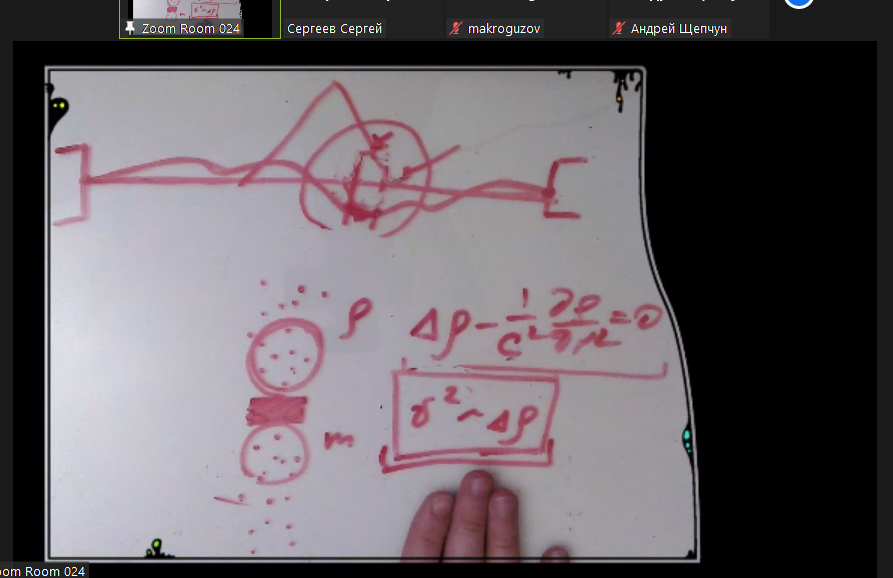 Zoom Room 024
Сергеев Сергей
makroguzov
Андрей Щепчун
ρ
Δρ - 1/c² ∂ρ/∂t² = 0
m
σ² ~ Δρ
oom Room 024